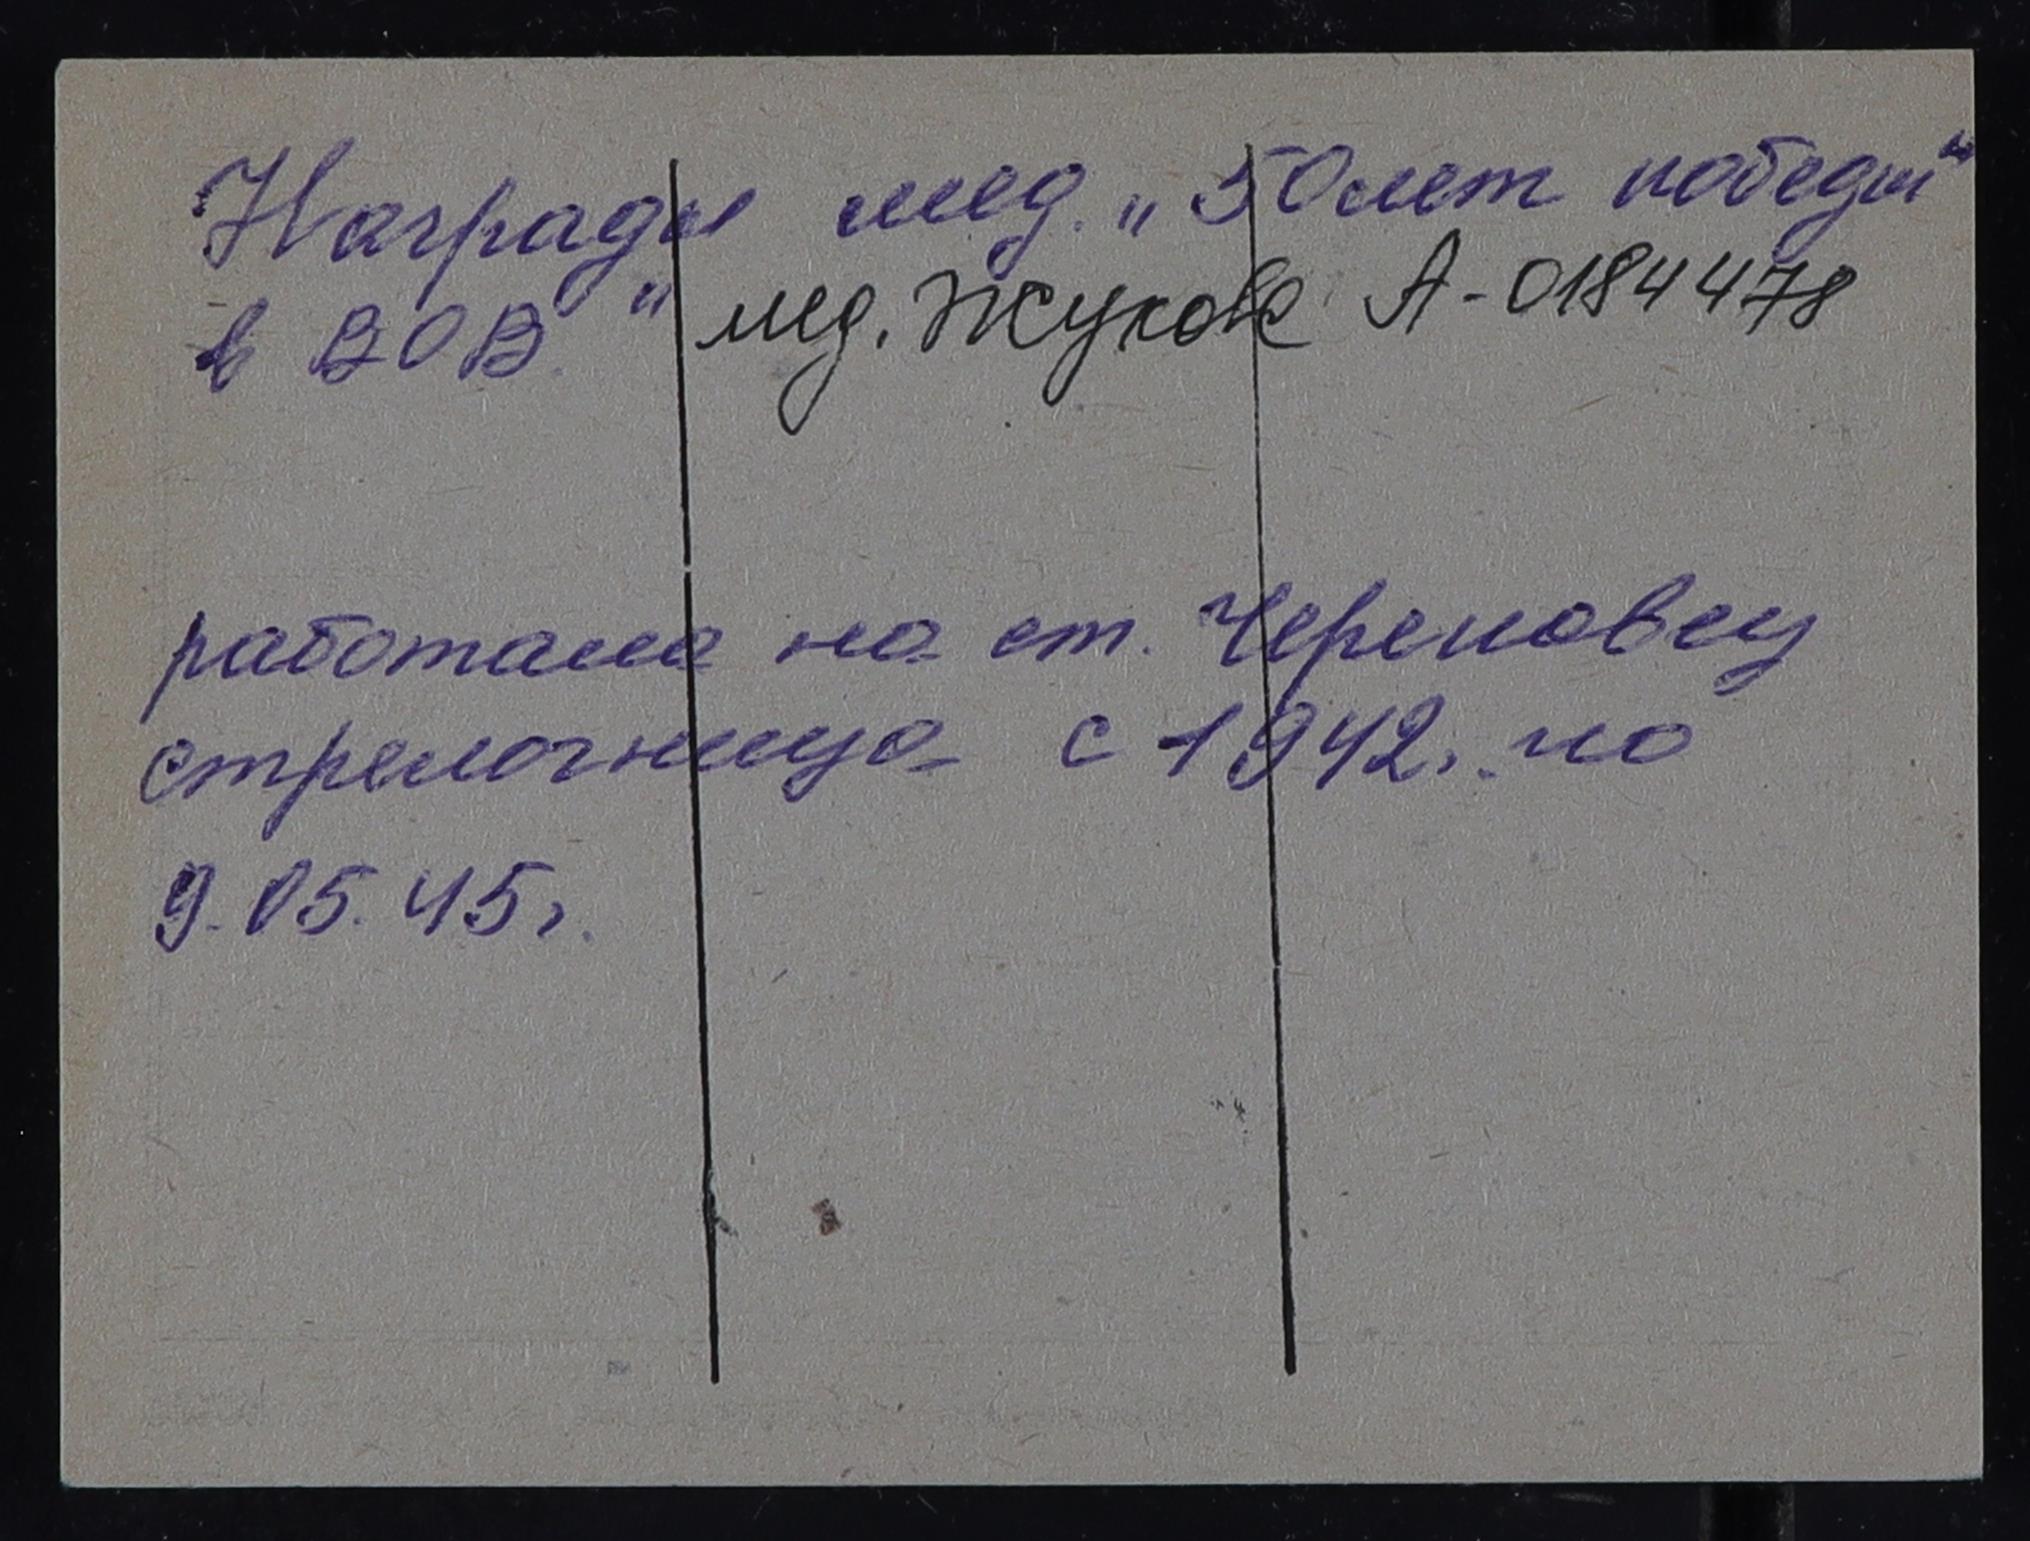 Награды мед. „50 лет победы“
в ВОВ." мед. Жукова А-0184478
работала на ст. Череповец
стрелочница с 1942г. по
9.05.45г.